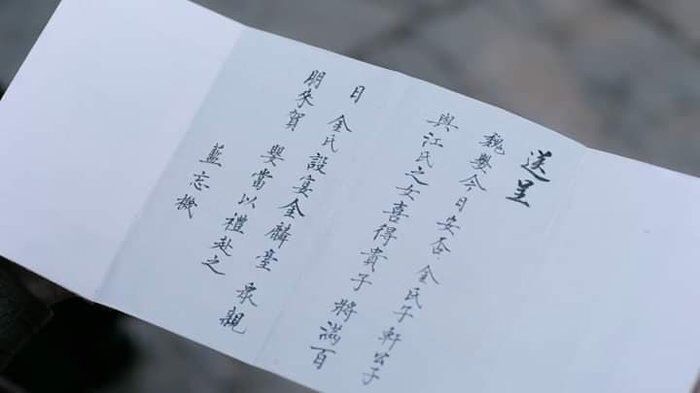 送呈
魏嬰今日安否金氏子軒公子
與江氏之女喜得貴子將滿百
日金氏設宴金麟臺衆親
朋來賀嬰當以禮赴之
藍忘機